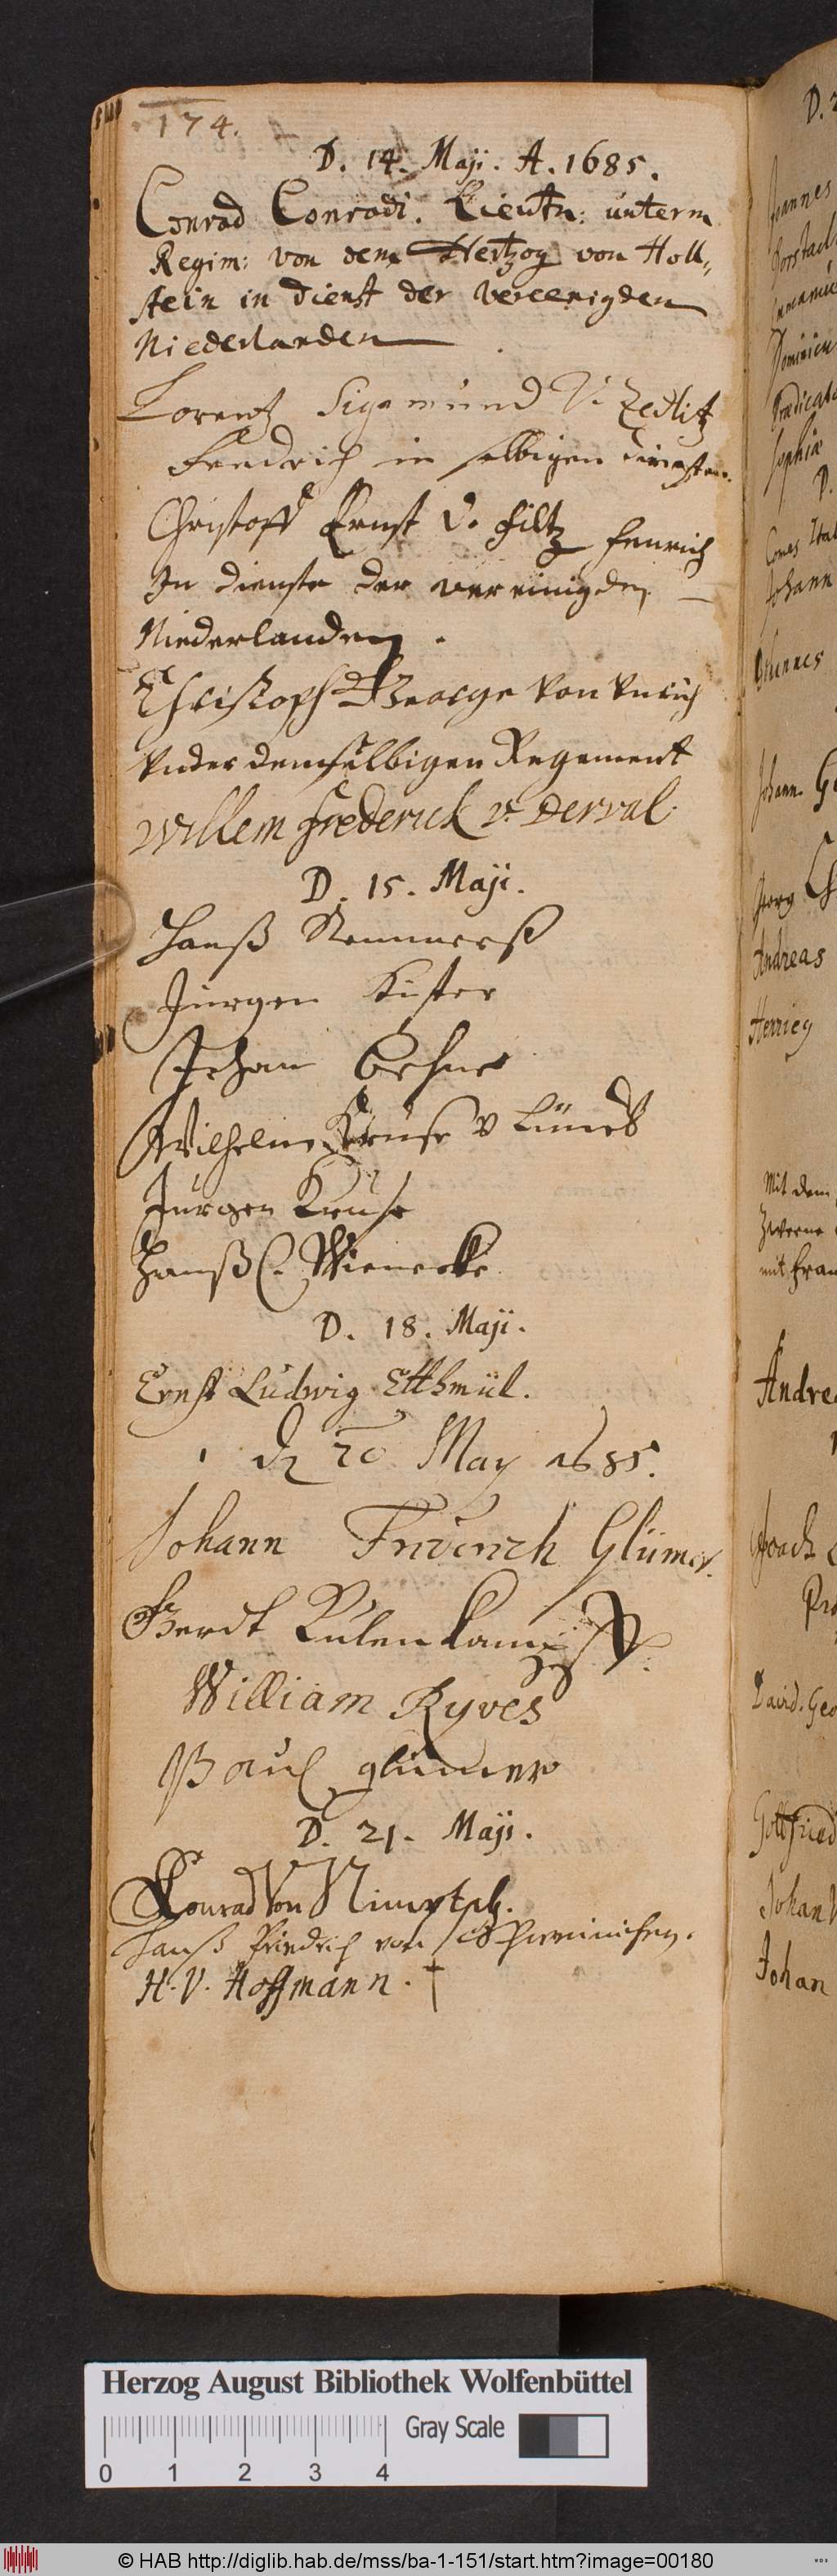 174.
D. 14. Maji. A. 1685.
Conrad Conradi. Lieutn: unterm
Regim: von dem Hertzog von Holl,,
stein in dienst der vereenigden
Niederlanden
Lorentz Sigemund V. Zedlitz
Fendrich in selbigen diensten.
Christoff Ernst v. Filtz fenrich
In dienste der vereinigden
Niederlanden.
Christoph George von
Under demselbigen Regement
Willem frederick v. Derval.
D. 15. Maji.
Hanß
Jürgen Küster
Johan
Wilhelm Kruse v
Jürgen Kruse
Hanß C. Wienecke
D. 18. Maji.
Ernst Ludwig Ettmül.
d 20 May 1685.
Johann Friderich Glümer.
Gerdt Kulenkamp
William Ryves
Paul glümer
D. 21. Maji.
Conrad Von Nimptsch.
Hanß Friedrich von
H. V. Hoffmann. †
D. 2
Joannes
Dominicu
Sophiæ
D.
Comes Ital
Johann
Johann. G
Georg Ch
Andreas
Mit dem
mit fran
Andre
Joach
David. Geo
Gottfried
Johan
Johan
Herzog August Bibliothek Wolfenbüttel
Gray Scale
0 1 2 3 4
© HAB http://diglib.hab.de/mss/ba-1-151/start.htm?image=00180